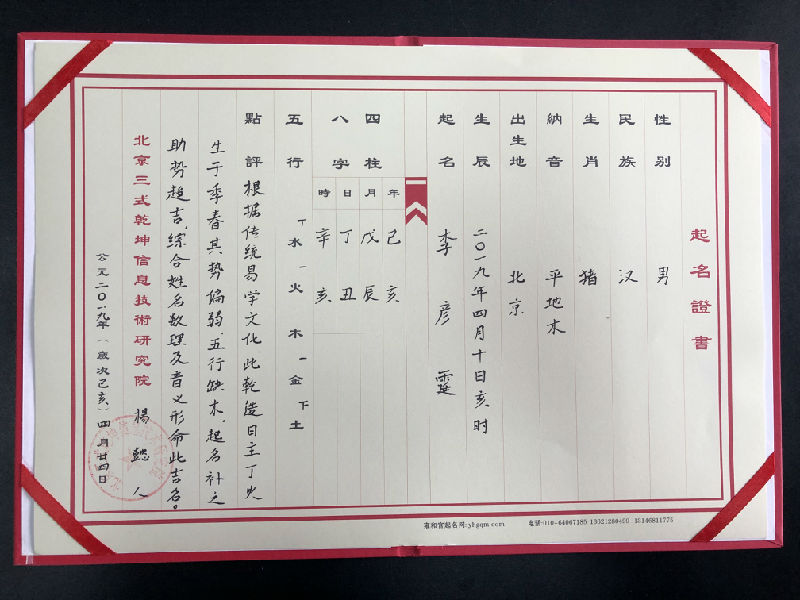 起名證書
性别 男
民族 汉
生肖 猪
納音 平地木
出生地 北京
生辰 二〇一九年四月十日亥时
起名 李彦霆
四柱 年 月 日 時
八字 己亥 戊辰 丁丑 辛亥
五行 丅水 一火 木 一金 下土
點評 根据传统易学文化此乾造日主丁火
生于季春其势偏弱、五行缺木、起名补之
助势趋吉,综合姓名数理及音义形命此吉名。
北京三式乾坤信息技術研究院 楊懿人
公元二〇一九年(歲次己亥)四月廿四日
雍和宫起名网:yhgqm.com 电话:010-64067185